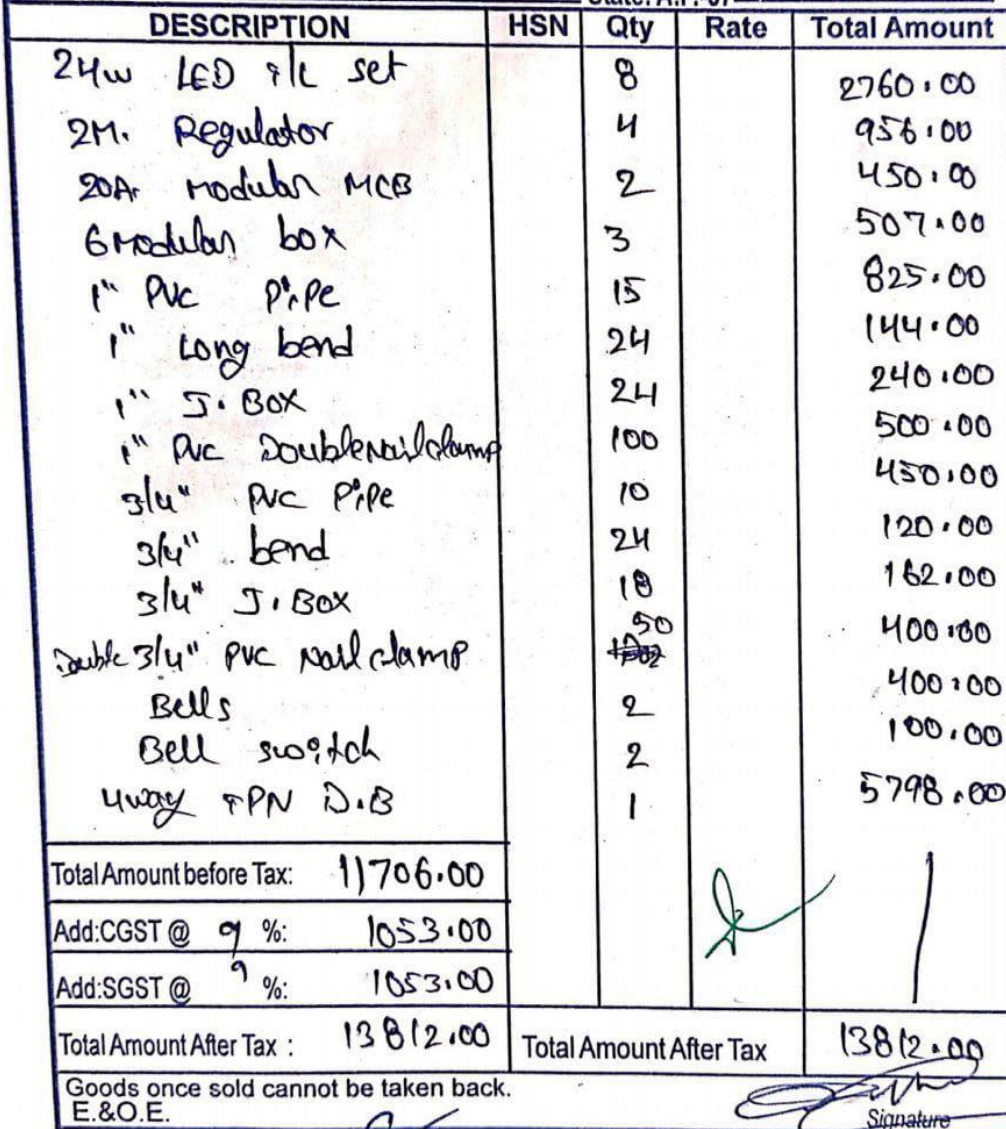 DESCRIPTION HSN Qty Rate Total Amount
24w LED f/c set 8 2760.00
2M. Regulator 4 956.00
20A. Modular MCB 2 450.00
6 Modular box 3 507.00
1" PVC Pipe 15 825.00
1" Long bend 24 144.00
1" J. Box 24 240.00
1" PVC Double nail clamp 100 500.00
3/4" PVC Pipe 10 450.00
3/4" bend 24 120.00
3/4" J. Box 18 162.00
Double 3/4" PVC Nail clamp 50 400.00
Bells 2 400.00
Bell switch 2 100.00
4way TPN D.B 1 5798.00
Total Amount before Tax: 11706.00
Add:CGST @ 9 %: 1053.00
Add:SGST @ 9 %: 1053.00
Total Amount After Tax : 13812.00 Total Amount After Tax 13812.00
Goods once sold cannot be taken back.
E.&O.E.
Signature